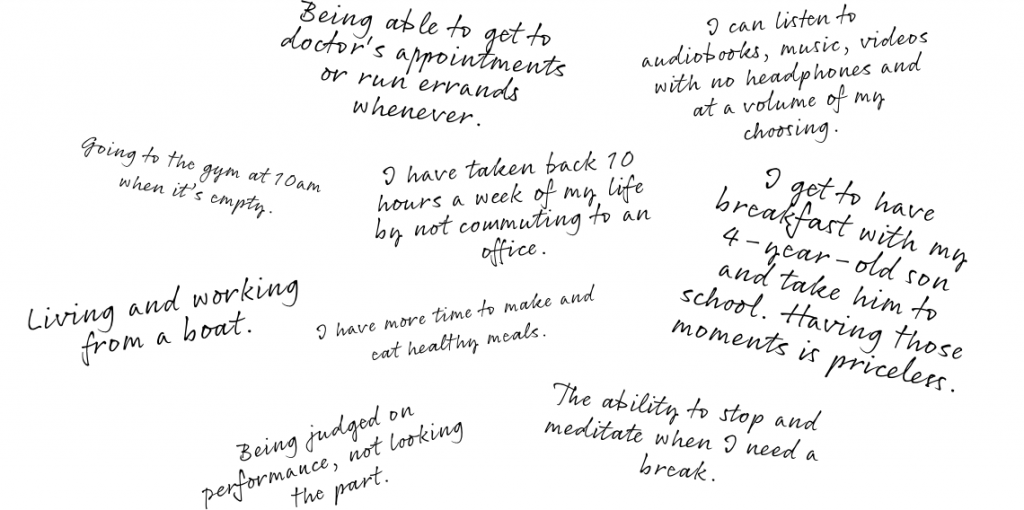 Being able to get to
doctor's appointments
or run errands
whenever.
I can listen to
audiobooks, music, videos
with no headphones and
at a volume of my
choosing.
Going to the gym at 10am
when it's empty.
I have taken back 10
hours a week of my life
by not commuting to an
office.
I get to have
breakfast with my
4-year-old son
and take him to
school. Having those
moments is priceless.
Living and working
from a boat.
I have more time to make and
eat healthy meals.
Being judged on
performance, not looking
the part.
The ability to stop and
meditate when I need a
break.